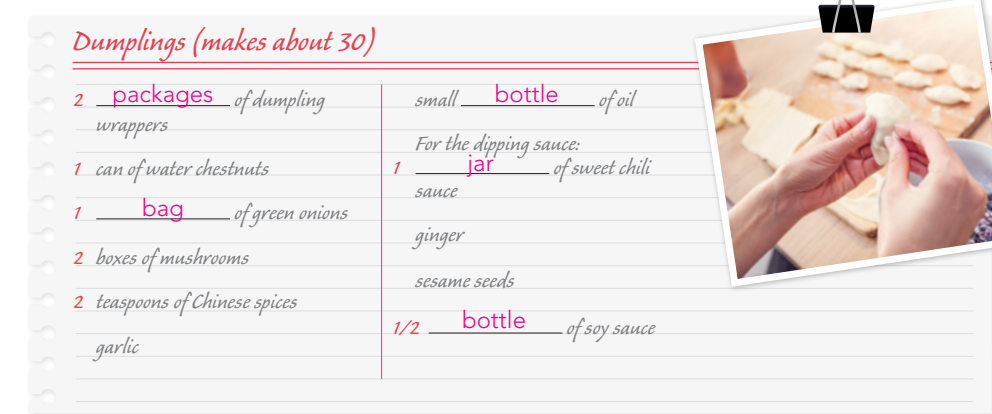 Dumplings (makes about 30)
2 packages of dumpling
wrappers
1 can of water chestnuts
1 bag of green onions
2 boxes of mushrooms
2 teaspoons of Chinese spices
garlic
small bottle of oil
For the dipping sauce:
1 jar of sweet chili
sauce
ginger
sesame seeds
1/2 bottle of soy sauce